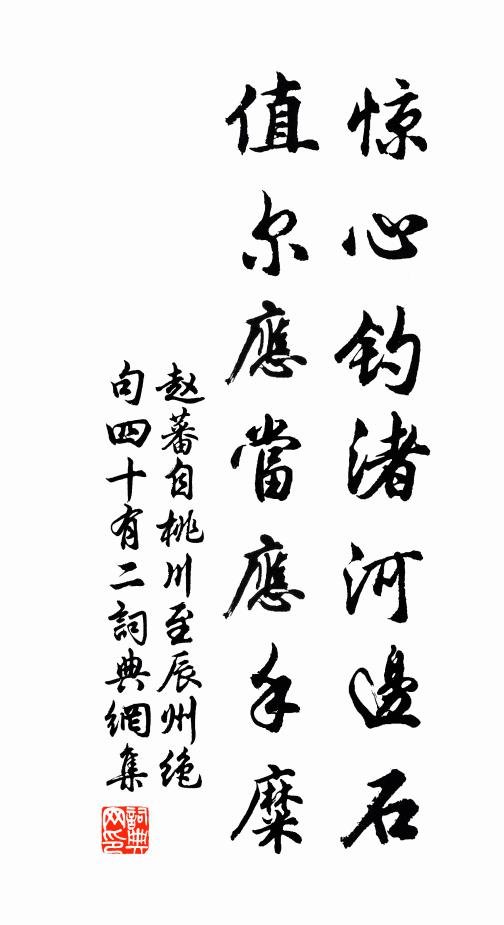 惊心钓渚河邊石
值尔應當應手糜
赵蕃自桃川至辰州绝
句四十有二詞典網集
詞典
网印